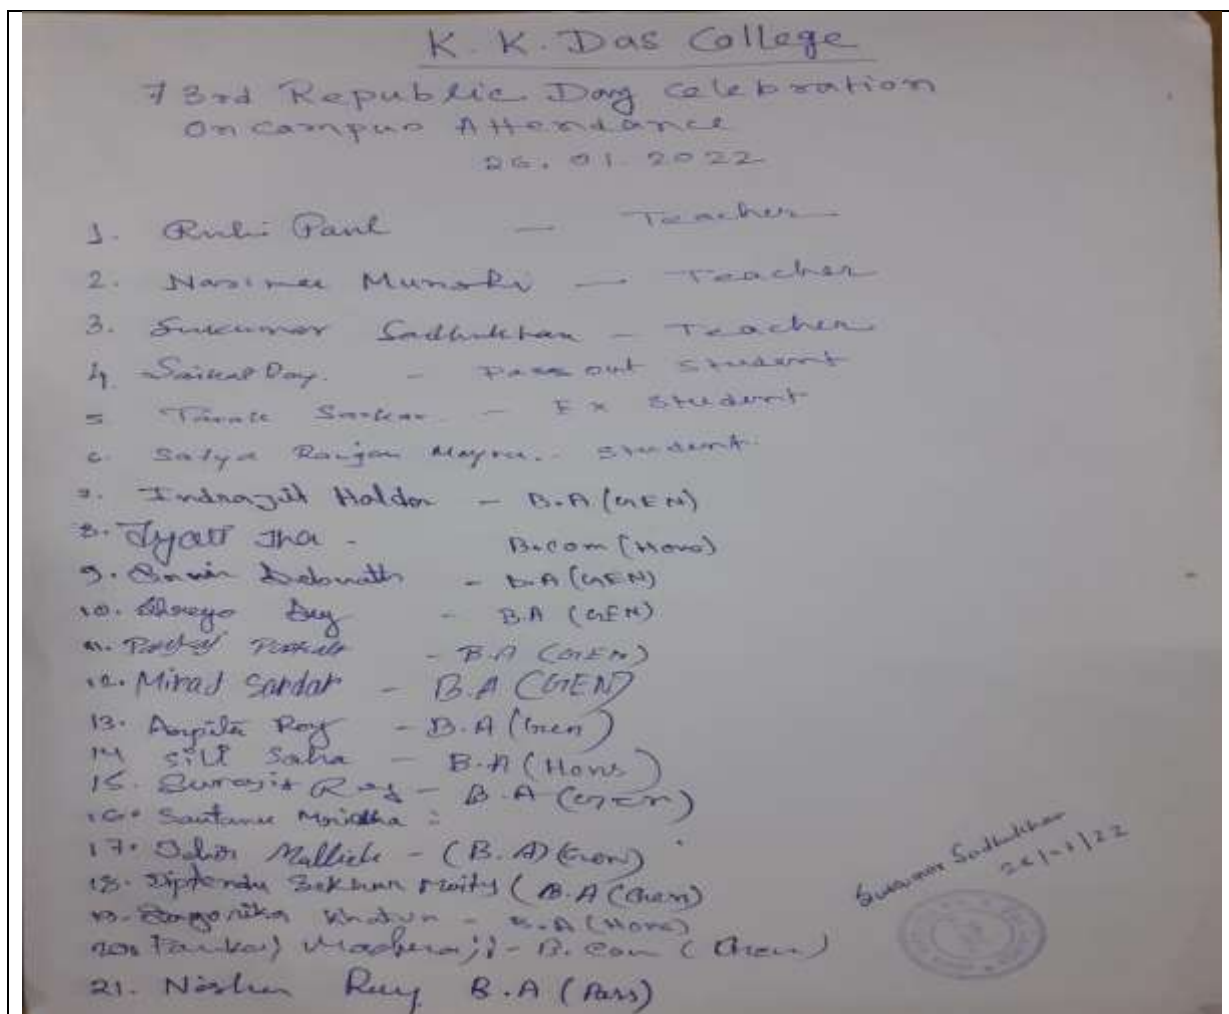 K. K. Das College
73rd Republic Day Celebration
On campus Attendance
26.01.2022
1. Ruhi Paul — Teacher
2. Nasimee Munshi — Teacher
3. Sukumar Sadhukhan – Teacher
4. Saikat Dey. – Pass out Student
5. Sarkar – Ex Student
6. Satya Ranjan Mayra.. Student.
7. Indrajit Halder – B.A (GEN)
8. Jyati Jha – B.com (Hons)
9. Debnath – B.A (GEN)
10. Shreya Dey – B.A (GEN)
11. – B.A (GEN)
12. Miraj Sardar – B.A (GEN)
13. Arpita Roy – B.A (Gen)
14 Sili Saha – B.A (Hons)
15. Surojit Roy – B.A (GEN)
16. Santanu Mridha :
17. Mallick – (B.A)
18. Diptendu Sekhar Maity ( B.A (Gen)
19. Sagorika Khatun – B.A (Hons)
20. Pankaj – B. Com ( Gen )
21. Roy B.A (Pass)
Sukumar Sadhukhan
26/01/22